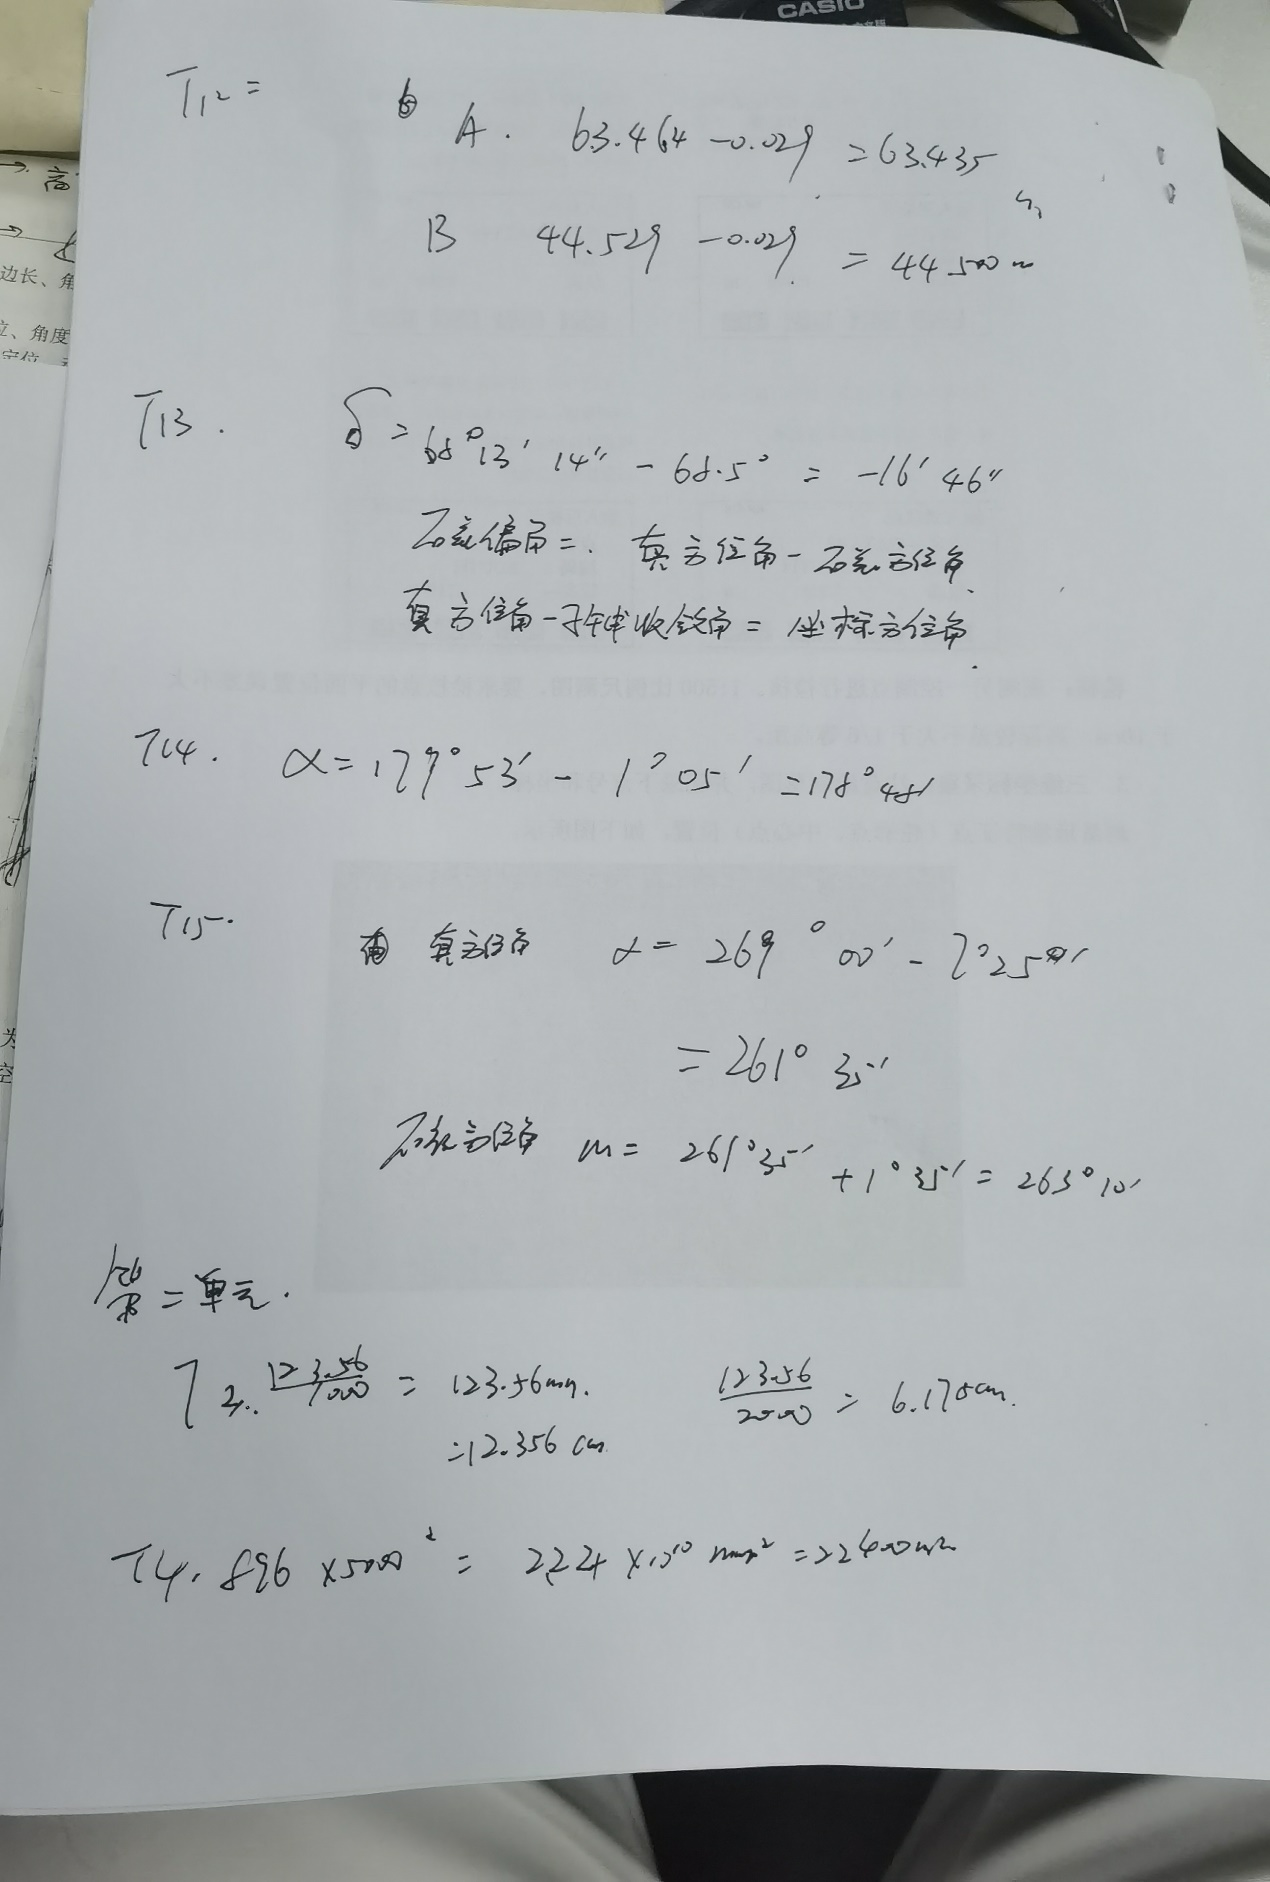 CASIO
T12 =
A. 63.464 -0.029 = 63.435
m
B 44.529 -0.029 = 44.500 m
T13. δ = 68°13′14″ - 68.5° = -16′46″
磁偏角 = 真方位角 - 磁方位角.
真方位角 - 子午线收敛角 = 坐标方位角.
T14. α = 179°53′ - 1°05′ = 178°48′
T15. 真方位角 α = 269°00′ - 7°25′
= 261°35′
磁方位角 m = 261°35′ + 1°35′ = 263°10′
第二单元.
T2. 123.56/1000 = 123.56mm. 123.56/2000 = 6.178cm.
= 12.356 cm
T4. 896 × 5000² = 2.24 × 10¹⁰ mm² = 22400 m²
高
边长、角
位、角度
定位
为
空